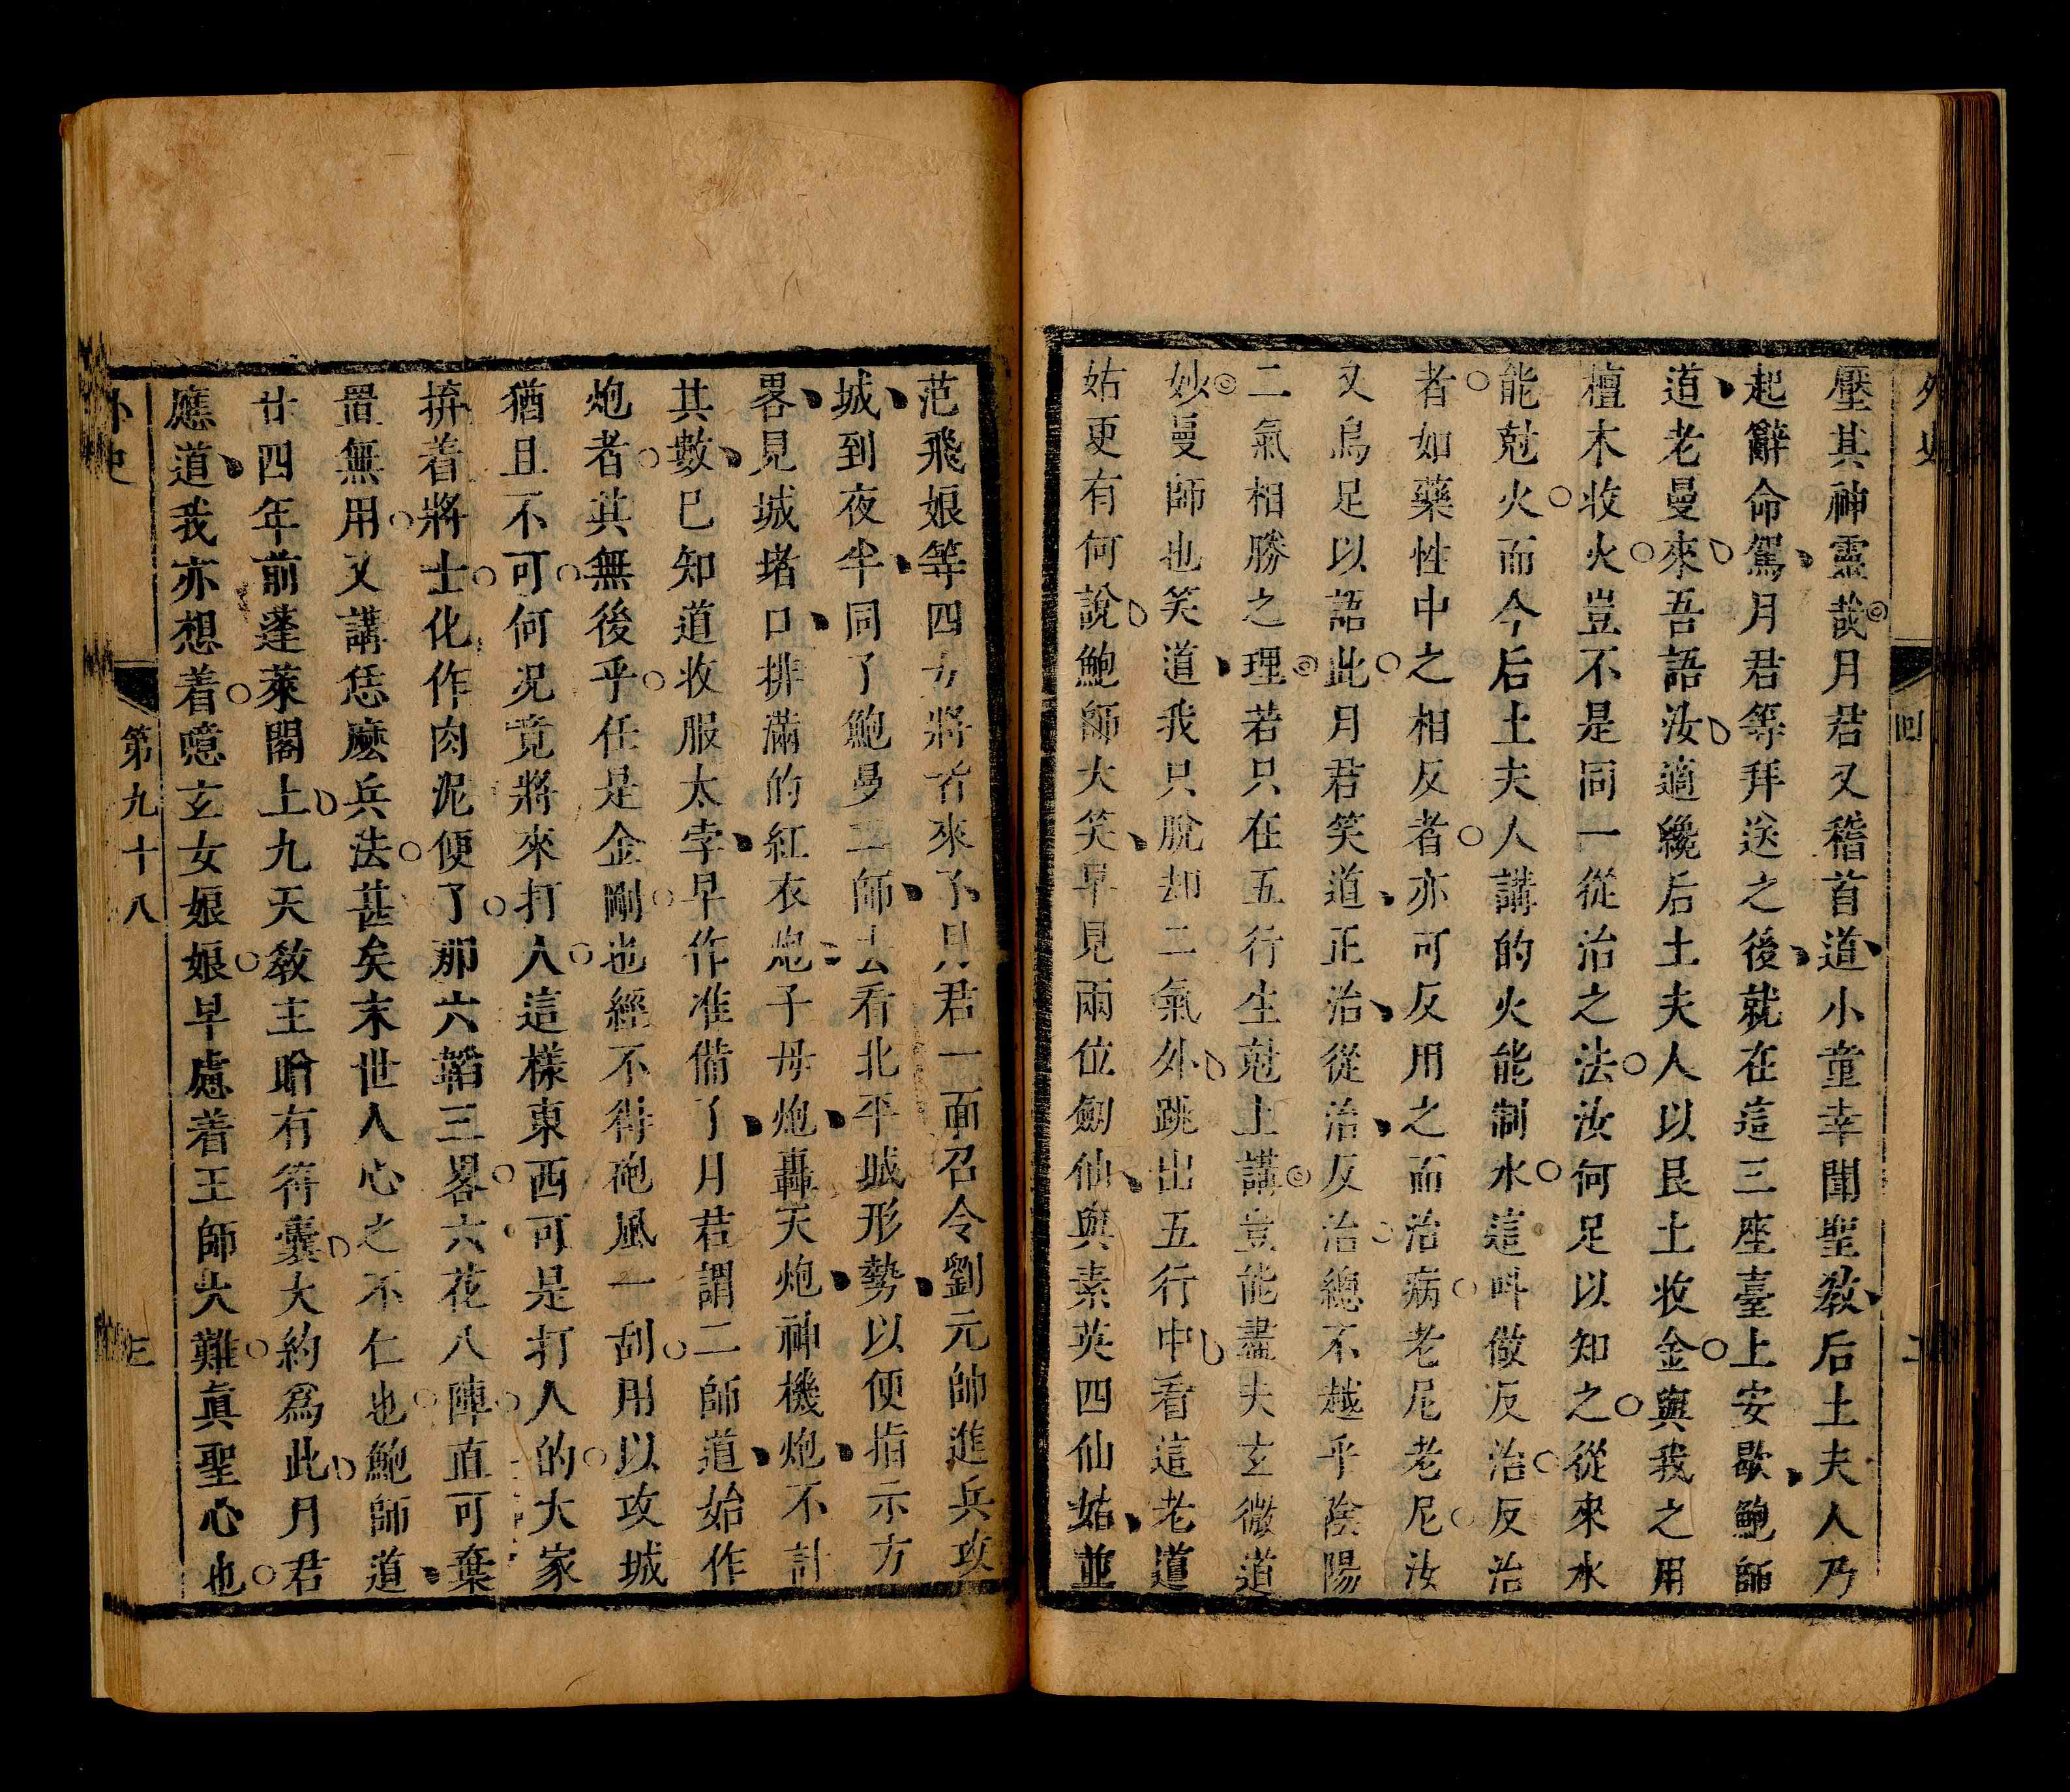 外史
回
二
壓其神靈哉月君又稽首道小童幸聞聖教后土夫人乃
起辭命駕月君等拜送之後就在這三座臺上安歇鮑師
道老曼來吾語汝適纔后土夫人以艮土收金與我之用
檀木收火豈不是同一從治之法汝何足以知之從來水
能尅火而今后土夫人講的火能制水這呌做反治反治
者如藥性中之相反者亦可反用之而治病老尼老尼汝
又烏足以語此月君笑道正治從治反治總不越乎陰陽
二氣相勝之理若只在五行生尅上講豈能盡夫玄微道
妙曼師也笑道我只脫却二氣外跳出五行中看這老道
姑更有何說鮑師大笑早見兩位劒仙與素英四仙姑並
范飛娘等四女將皆來了月君一面召令劉元帥進兵攻
城到夜半同了鮑曼二師去看北平城形勢以便指示方
畧見城堵口排滿的紅衣炮子母炮轟天炮神機炮不計
其數已知道收服太孛早作准備了月君謂二師道始作
炮者其無後乎任是金剛也經不得砲風一刮用以攻城
猶且不可何况竟將來打人這樣東西可是打人的大家
拚着將士化作肉泥便了那六韜三畧六花八陣直可棄
置無用又講恁麽兵法甚矣末世人心之不仁也鮑師道
廿四年前蓬萊閣上九天敎主貽有符囊大約爲此月君
應道我亦想着噫玄女娘娘早慮着王師大難眞聖心也
外史
第九十八
三